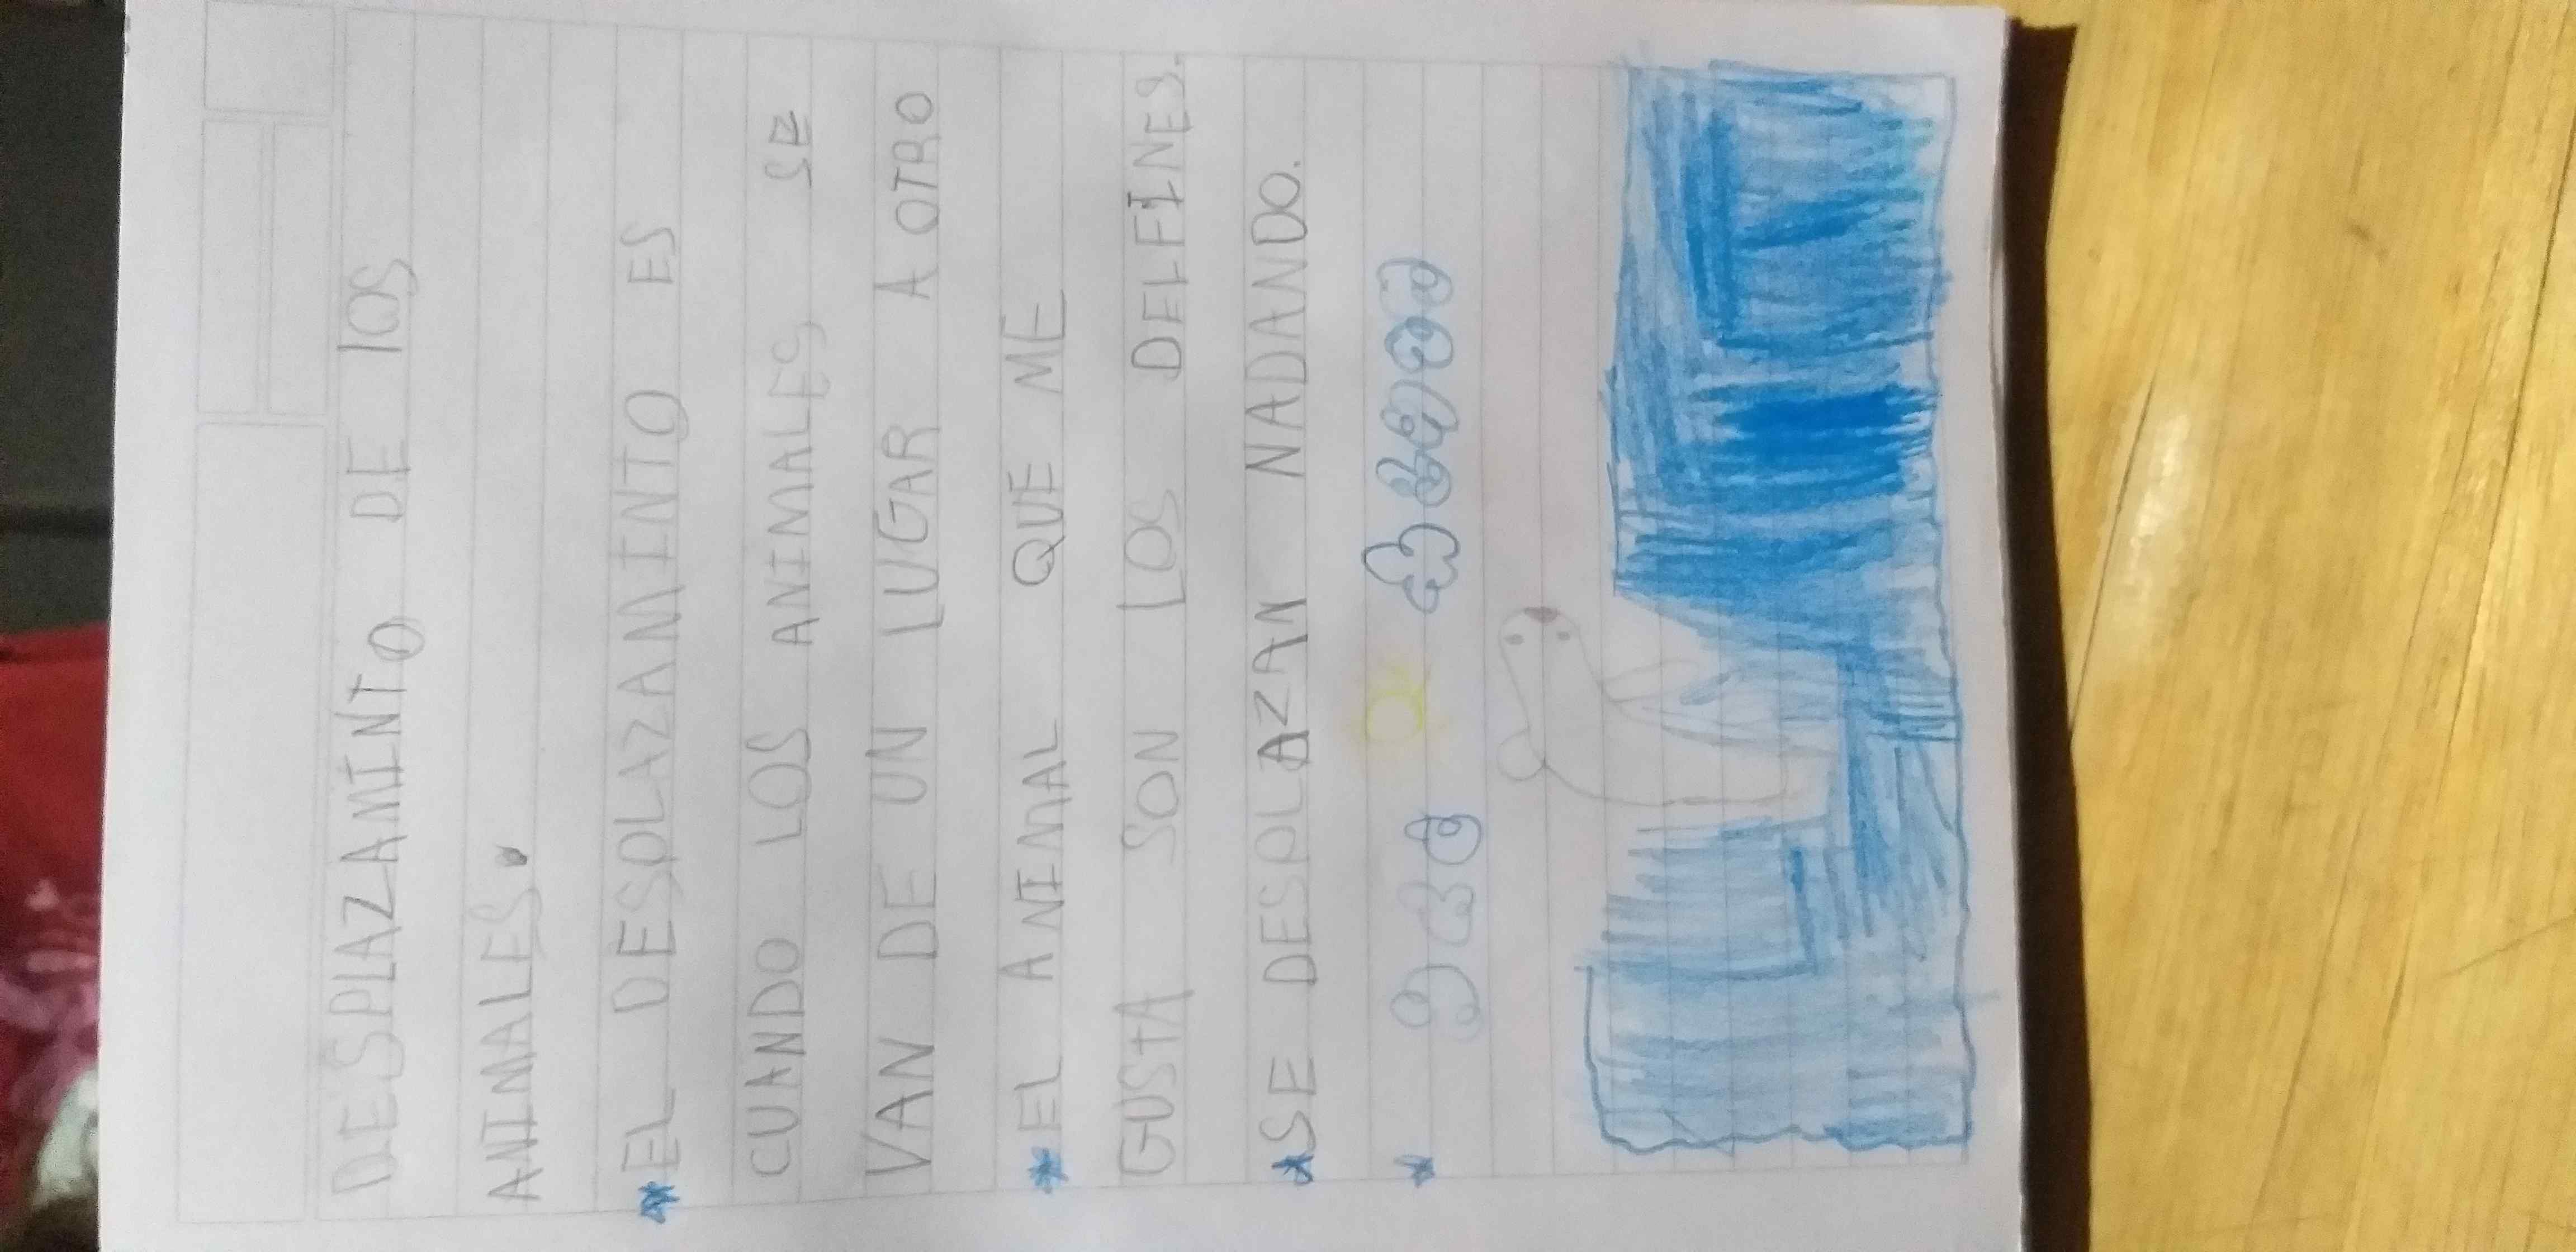 DESPLAZAMINTO DE lOS
ANIMALES.
* EL DESOLAZAMINTO ES
CUANDO LOS ANIMALES SE
VAN DE UN LUGAR A OTRO
* EL ANIMAL QUE ME
GUSTA SON LOS DELFINES.
* SE DESPLAZAN NADANDO.
*